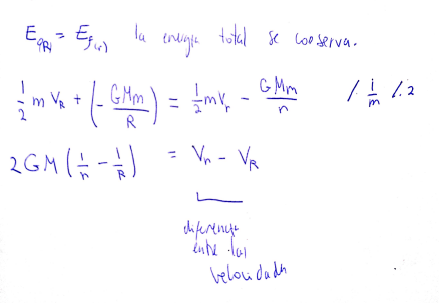 E_{g(R)} = E_{f(r)} la energia total se conserva.
\frac{1}{2} m V_R + \left(-\frac{GMm}{R}\right) = \frac{1}{2} m V_r - \frac{GMm}{r} /\cdot \frac{1}{m} /\cdot 2
2GM \left(\frac{1}{r} - \frac{1}{R}\right) = V_r - V_R
diferencia
entre las
velocidades